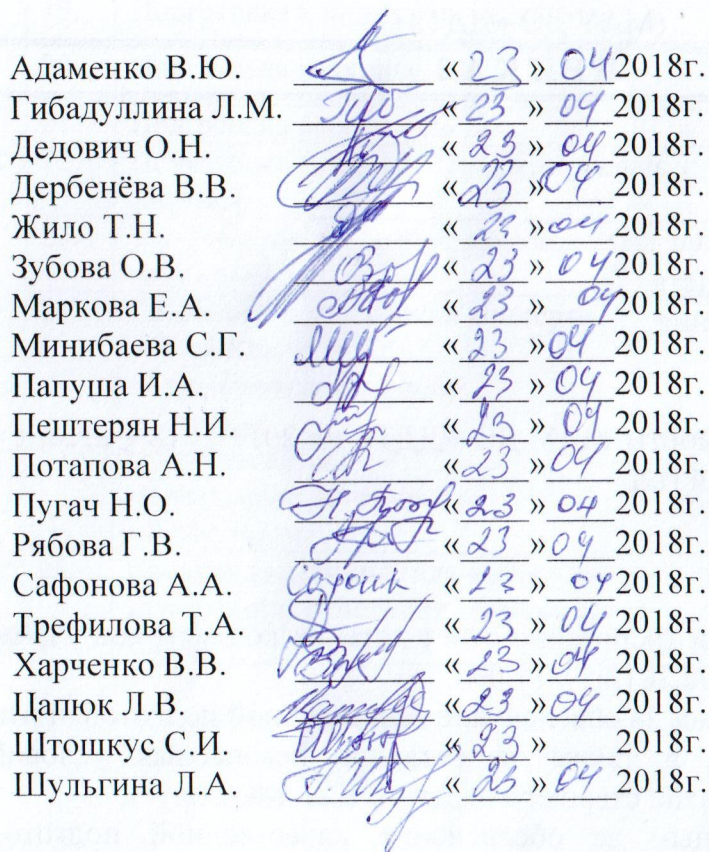 Адаменко В.Ю. « 23 » 04 2018г.
Гибадуллина Л.М. Гиб « 23 » 04 2018г.
Дедович О.Н. « 23 » 04 2018г.
Дербенёва В.В. « 23 » 04 2018г.
Жило Т.Н. « 23 » 04 2018г.
Зубова О.В. « 23 » 04 2018г.
Маркова Е.А. « 23 » 04 2018г.
Минибаева С.Г. « 23 » 04 2018г.
Папуша И.А. « 23 » 04 2018г.
Пештерян Н.И. « 23 » 04 2018г.
Потапова А.Н. « 23 » 04 2018г.
Пугач Н.О. « 23 » 04 2018г.
Рябова Г.В. « 23 » 04 2018г.
Сафонова А.А. « 23 » 04 2018г.
Трефилова Т.А. « 23 » 04 2018г.
Харченко В.В. « 23 » 04 2018г.
Цапюк Л.В. « 23 » 04 2018г.
Штошкус С.И. « 23 » 2018г.
Шульгина Л.А. « 23 » 04 2018г.